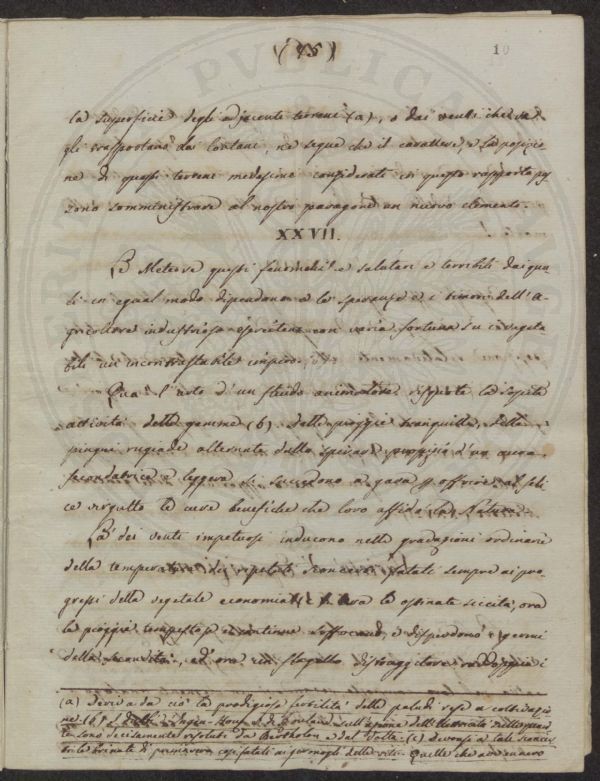 (45)
10
la superficie degli adjacenti terreni (a), o dai venti che ve
gli trasportano da lontani, ne segue che il carattere, e la posizio-
ne di questi terreni medesimi considerati in questo rapporto pos
sono somministrare al nostro paragone un nuovo elemento.
XXVII.
Le Meteore questi fenomeni e salutari e terribili dai qua
li in egual modo dipendono e le speranze e i timori dell'a-
gricoltore industrioso esercitano con varia fortuna su i vegeta
bili un incontrastabile impero.
Qua l'urto d'un fluido animatore la sopita
attività delle gemme (b). Delle pioggie tranquille, delle
pingui rugiade alternate dallo spirar d'un aura
fecondatrice e leggera si succedono a gara offrire al feli
ce virgulto le cure benefiche che loro affida la Natura.
Là dei venti impetuosi inducono nelle gradazioni ordinarie
della temperatura dei ripetuti sconcerti fatali sempre ai pro-
gressi della vegetale economia. Ora le ostinate siccità, ora
le pioggie tempestose e continue soffocano, e disperdono i germi
della fecondità, ed ora un flagello distruggitore
(a) Deriva da ciò la prodigiosa fertilità delle paludi rese a coltivazio
ne (b) sull'azione dell'elettricità nelle pian
te sono decisamente risoluti da Bartholon e dal Volta. (c)
le brinate di primavera ai germogli delle viti. Quelle che avvennero